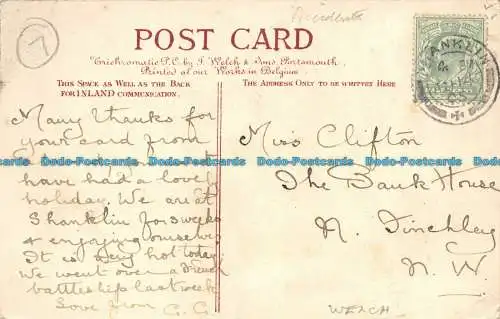 7
Accidents
POST CARD
Trichromatic P.C. by J. Welch & Sons, Portsmouth,
Printed at our Works in Belgium
THIS SPACE AS WELL AS THE BACK
FOR INLAND COMMUNICATION.
THE ADDRESS ONLY TO BE WRITTEN HERE
ANKLIN
Many thanks for
your card from
Dodo-Postcards Dodo-Postcards Dodo-Postcards Dodo-Postcards
have had a lovely
holiday. We are at
Shanklin for 3 weeks
& enjoying ourselves
It is very hot today
We went over a French
battleship last week
Love from G. G.
Miss Clifton
The Bank House
N. Finchley
N. W.
WELCH